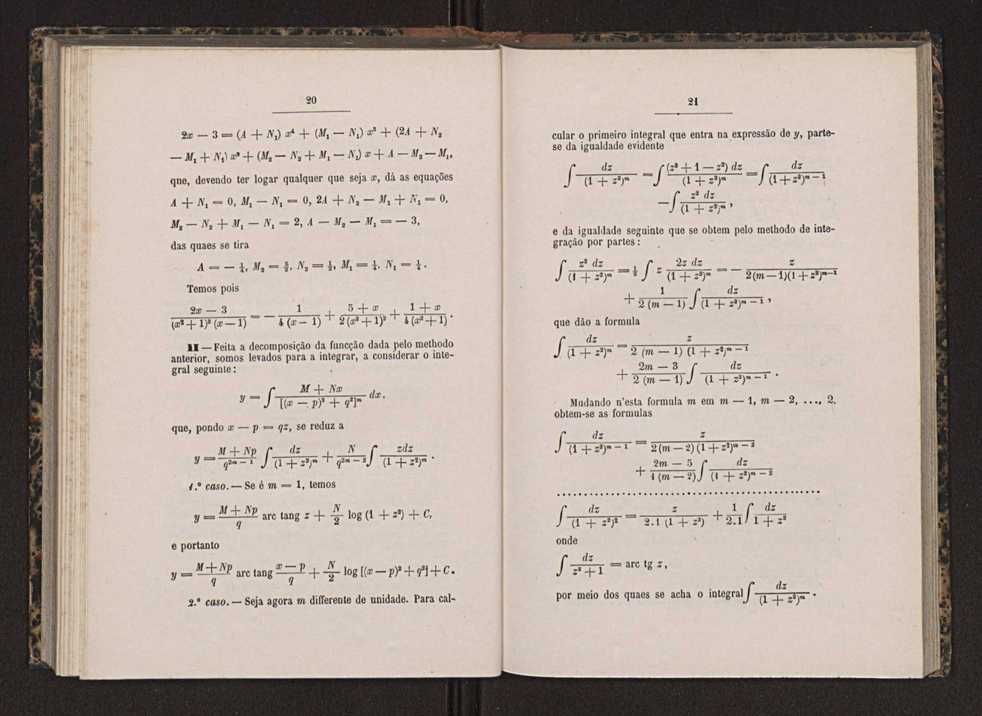 20
2x — 3 = (A + N₁) x⁴ + (M₁ — N₁) x³ + (2A + N₂
— M₁ + N₁) x² + (M₂ — N₂ + M₁ — N₁) x + A — M₂ — M₁,
que, devendo ter logar qualquer que seja x, dá as equações
A + N₁ = 0, M₁ — N₁ = 0, 2A + N₂ — M₁ + N₁ = 0,
M₂ — N₂ + M₁ — N₁ = 2, A — M₂ — M₁ = — 3,
das quaes se tira
A = — ¼, M₂ = 5/2, N₂ = ½, M₁ = ¼, N₁ = ¼.
Temos pois
(2x — 3)/((x² + 1)² (x — 1)) = — 1/(4 (x — 1)) + (5 + x)/(2 (x² + 1)²) + (1 + x)/(4 (x² + 1)).
II — Feita a decomposição da funcção dada pelo methodo
anterior, somos levados para a integrar, a considerar o inte-
gral seguinte:
y = ∫ (M + Nx)/([(x — p)² + q²]ᵐ) dx.
que, pondo x — p = qz, se reduz a
y = (M + Np)/(q²ᵐ⁻¹) ∫ dz/((1 + z²)ᵐ) + N/(q²ᵐ⁻²) ∫ zdz/((1 + z²)ᵐ).
1.º caso. — Se é m = 1, temos
y = (M + Np)/q arc tang z + N/2 log (1 + z²) + C,
e portanto
y = (M + Np)/q arc tang (x — p)/q + N/2 log [(x — p)² + q²] + C.
2.º caso. — Seja agora m differente de unidade. Para cal-
21
cular o primeiro integral que entra na expressão de y, parte-
se da igualdade evidente
∫ dz/((1 + z²)ᵐ) = ∫ ((z² + 1 — z²) dz)/((1 + z²)ᵐ) = ∫ dz/((1 + z²)ᵐ⁻¹)
— ∫ z² dz/((1 + z²)ᵐ),
e da igualdade seguinte que se obtem pelo methodo de inte-
gração por partes:
∫ z² dz/((1 + z²)ᵐ) = ½ ∫ z 2z dz/((1 + z²)ᵐ) = — z/(2(m — 1)(1 + z²)ᵐ⁻¹)
+ 1/(2 (m — 1)) ∫ dz/((1 + z²)ᵐ⁻¹),
que dão a formula
∫ dz/((1 + z²)ᵐ) = z/(2 (m — 1) (1 + z²)ᵐ⁻¹)
+ (2m — 3)/(2 (m — 1)) ∫ dz/((1 + z²)ᵐ⁻¹).
Mudando n'esta formula m em m — 1, m — 2, ..., 2,
obtem-se as formulas
∫ dz/((1 + z²)ᵐ⁻¹) = z/(2 (m — 2) (1 + z²)ᵐ⁻²)
+ (2m — 5)/(4 (m — 2)) ∫ dz/((1 + z²)ᵐ⁻²)
..........................................
∫ dz/((1 + z²)²) = z/(2.1 (1 + z²)) + 1/2.1 ∫ dz/(1 + z²)
onde
∫ dz/(z² + 1) = arc tg z,
por meio dos quaes se acha o integral ∫ dz/((1 + z²)ᵐ).